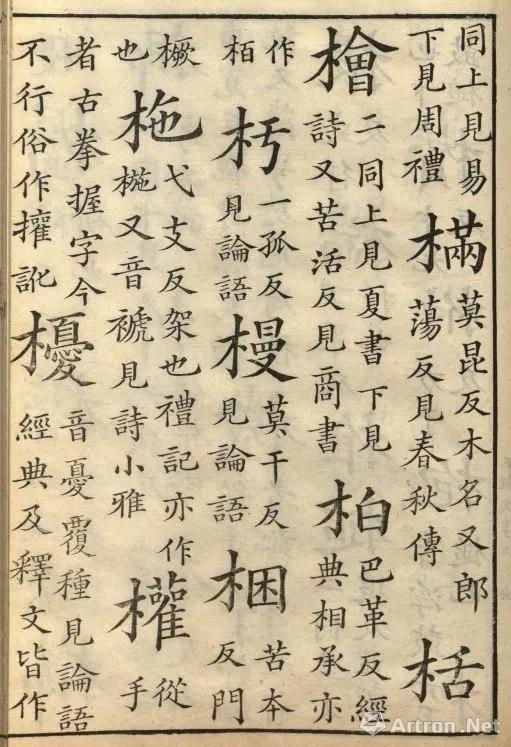 同上見易下見周禮樠莫昆反木名又郎蕩反見春秋傳栝
檜二同上見夏書下見詩又苦活反見商書柏巴革反經典相承亦
作栢杇一孤反見論語槾莫干反見論語梱苦本反門
橛也柂弋支反架也禮記亦作椸又音褫見詩小雅權從手
者古拳握字今不行俗作攉訛櫌音憂覆種見論語經典及釋文皆作
Artron.Net